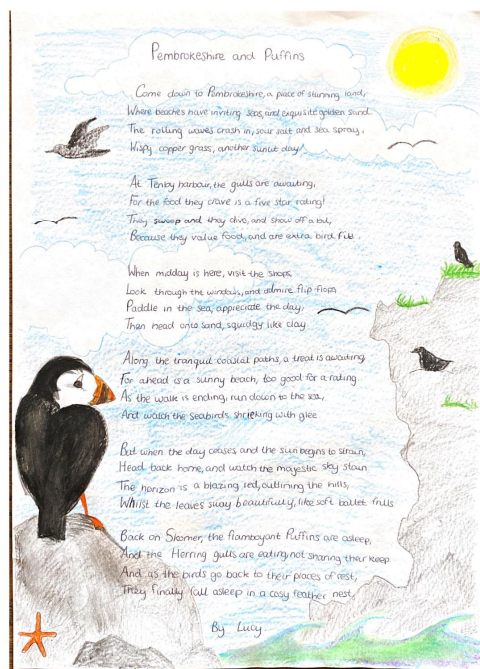 Pembrokeshire and Puffins
Come down to Pembrokeshire, a place of stunning land,
Where beaches have inviting seas, and exquisite golden sand.
The rolling waves crash in, sour salt and sea spray,
Wispy copper grass, another sunlit day!
At Tenby harbour, the gulls are awaiting,
For the food they crave is a five star rating!
They swoop and they dive, and show off a bit,
Because they value food, and are extra bird fit.
When midday is here, visit the shops,
Look through the windows, and admire flip-flops
Paddle in the sea, appreciate the day,
Then head onto sand, squidgy like clay.
Along the tranquil coastal paths, a treat is awaiting
For ahead is a sunny beach, too good for a rating.
As the walk is ending, run down to the sea,
And watch the seabirds shrieking with glee.
But when the day ceases and the sun begins to strain,
Head back home, and watch the majestic sky stain.
The horizon is a blazing red, outlining the hills,
Whilst the leaves sway beautifully, like soft ballet frills
Back on Skomer, the flamboyant Puffins are asleep,
And the Herring gulls are eating, not sharing their keep.
And as the birds go back to their places of rest,
They finally fall asleep in a cosy feather nest,
By Lucy